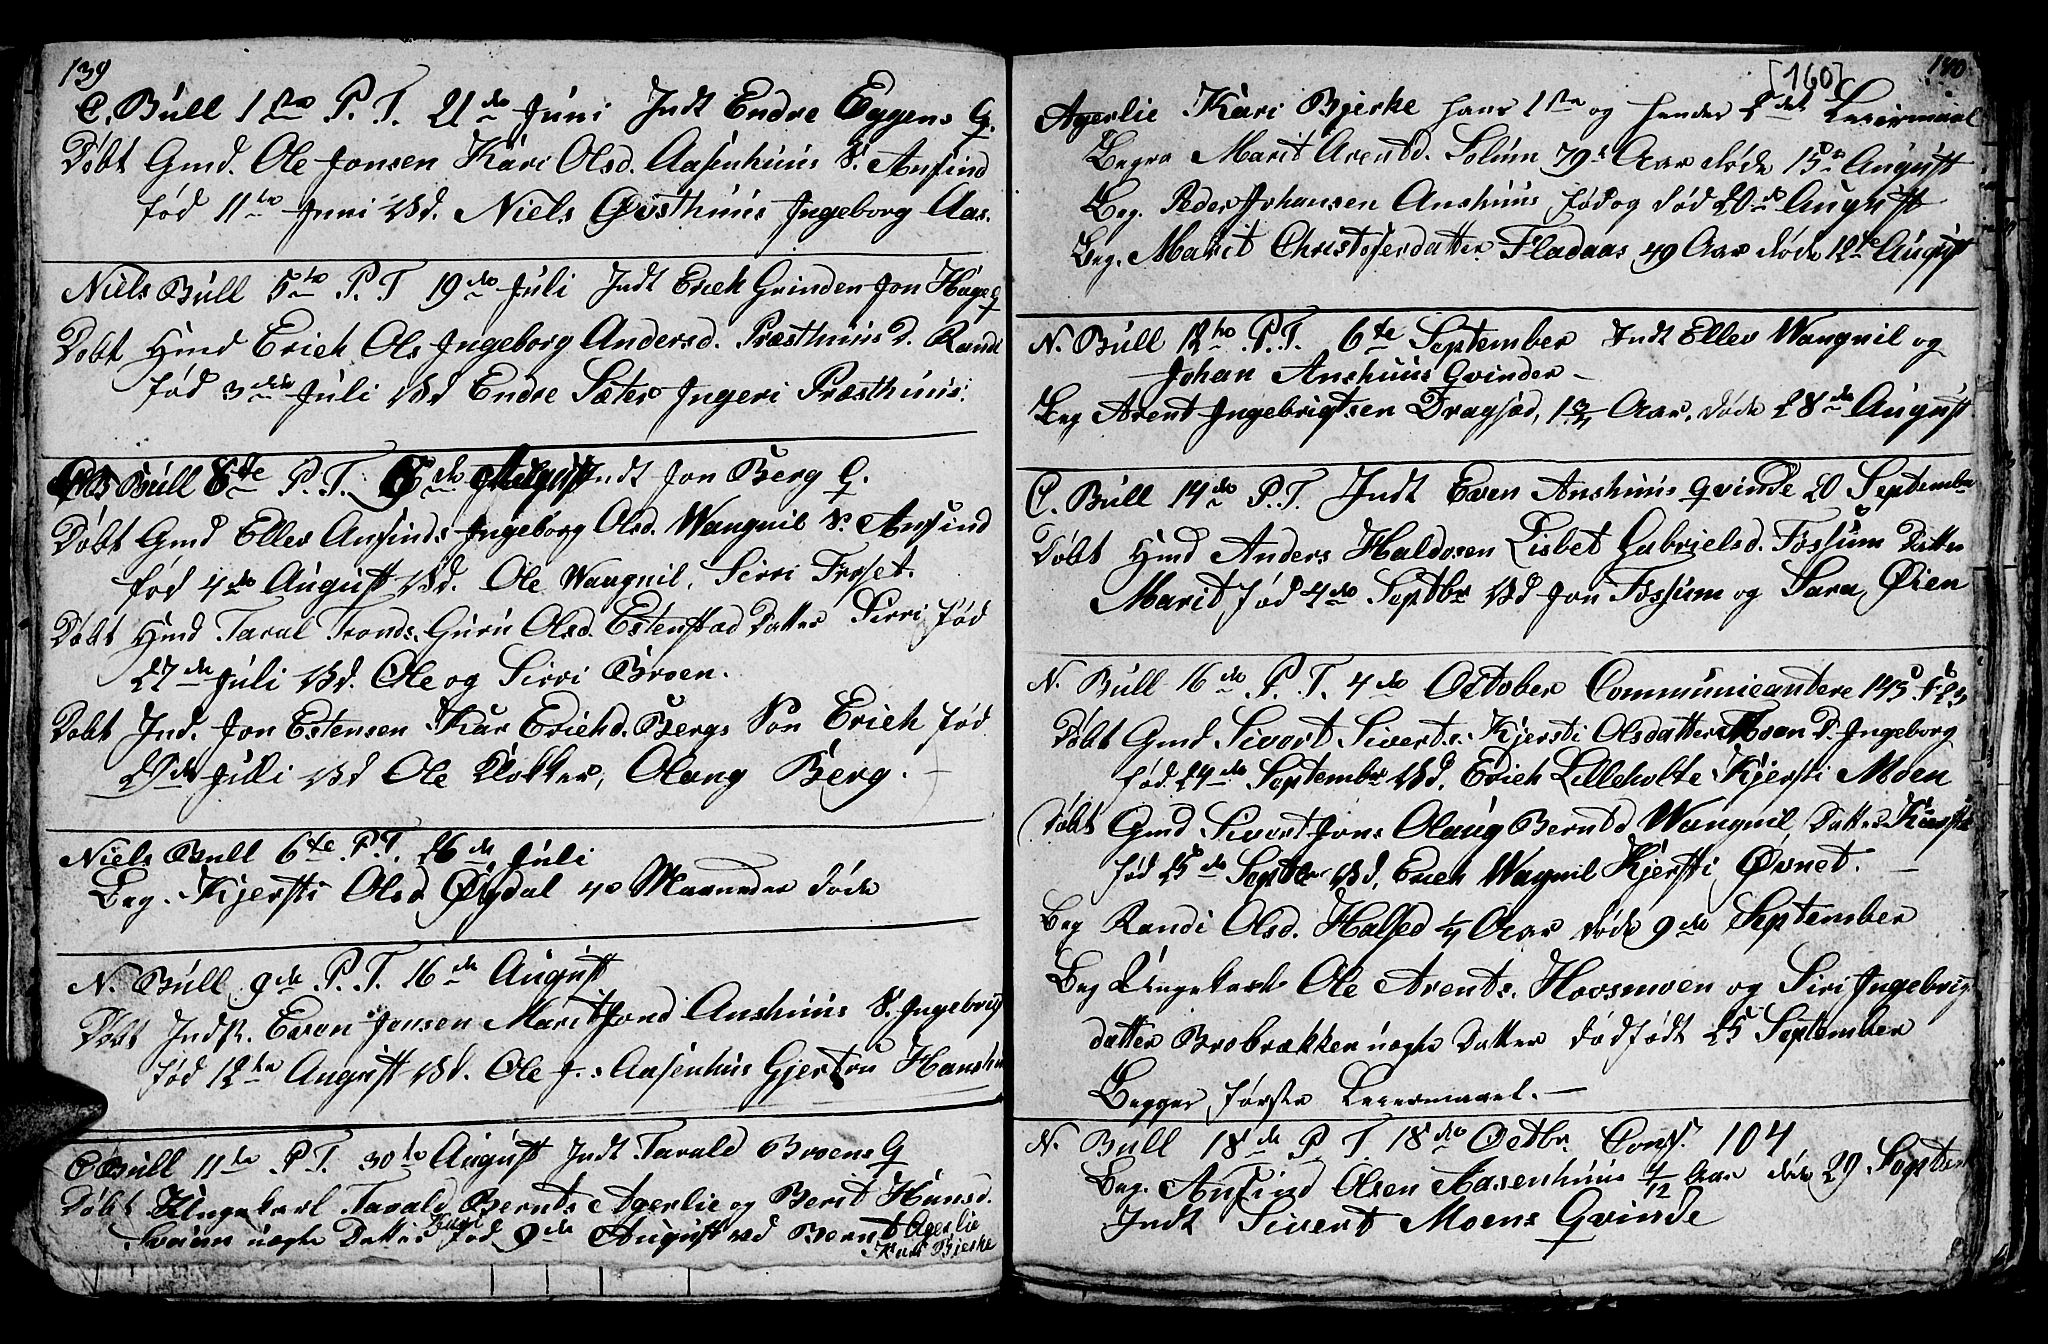 139
C. Bull 1ste P. T. 21de Juni Indt Endre Eggens Q.
Døbt Gmd. Ole Jonsen Kari Olsd. Aasenhuus S. Ansind
fød 11te Juni Vd. Niels Østhuus Ingeborg Aas.
Niels Bull 5te P. T 19de Juli Indt Erich Grinden Jon Hage Q
Døbt Hmd Erich Ols Ingeborg Andersd. Præsthuus D. Randi
fød 3die Juli Vd Endre Sæter Ingeri Præsthuus.
Bull 8de P. T. August Indt Jon Berg Q.
Døbt Gmd Ellev Ansinds Ingeborg Olsd. Wangnil S. Ansind
fød 4de August Vd. Ole Wangnil, Sirri Froset.
Døbt Hmd Taral Tronds. Guru Olsd. Estenstad Datter Sirri fød
27de Juli Vd. Ole og Sirri Broen.
Døbt Ind. Jon Estensen Kar Erichd. Bergs Søn Erich fød
29de Juli Vd Ole Klokker, Olaug Berg.
Niels Bull 6te P.T. 26de Juli
Beg. Kjersti Olsd Øigdal 40 Maaneder døde
N. Bull 9de P. T. 16de August
Døbt Indst. Even Jonsen Marit Jond Anshuus S. Ingebrigt
fød 12te August Vd. Ole J. Aasenhuus Gjertru Hanshu
C Bull 11te P. T. 30te August Indt Tarald Broens Q
Døbt Ungekarl Tarald Bernts Agerlie og Berit Hansd.
uægte Datter Kari fød 9de August vd Bernt Agerlie
Kari Bjerke
140
[160]
Agerlie Kari Bjerke hans 1ste og hendes 2det Leiermaal
Begra Marit Arentd. Solum 79de Aar døde 15de August
Beg. Peder Johansen Anshuus fød og død 20de August
Beg. Marit Christofersdatter Fladaas 49 Aar døde 12te August
N. Bull 12te P. T. 6te September Indt Ellev Wangnil og
Johan Anshuus Qvinder
Beg Arent Ingebrigtsen Dragsæd, 1 3/4 Aar, døde 28de August
C. Bull 14de P. T. Indt Even Anshuus Qvinde 20 September
Døbt Hmd Anders Haldosen Lisbet Gabrielsd. Fossum Datter
Marit fød 4de Septbr Vd Jon Fossum og Sara Øien
N. Bull 16de P. T. 4de October Communicantere 145
Døbt Gmd Sivert Siverts. Kjersti Olsdatter Moen D. Ingeborg
fød 24de Septembr Vd. Erich Lilleholte Kjersti Moen
Døbt Gmd Sivert Jons Olaug Berntd Wangnil Datter Kiersti
fød 25de Septbr Vd. Erich Wagnil Kjersti Øvnet.
Beg Randi Olsd. Halsed 1/4 Aar døde 9de September
Beg Ungekarl Ole Arents. Hovsmoen og Siri Ingebrigt
datter Brobrækken uægte Datter dødfødt 25 September
Begges første Leiermaal.
N. Bull 18de P. T. 18de Octbr Cons. 104
Beg. Ansind Olsen Aasenhuus 4/12 Aar døde 29 Septem
Indt Sivert Moens Qvinde